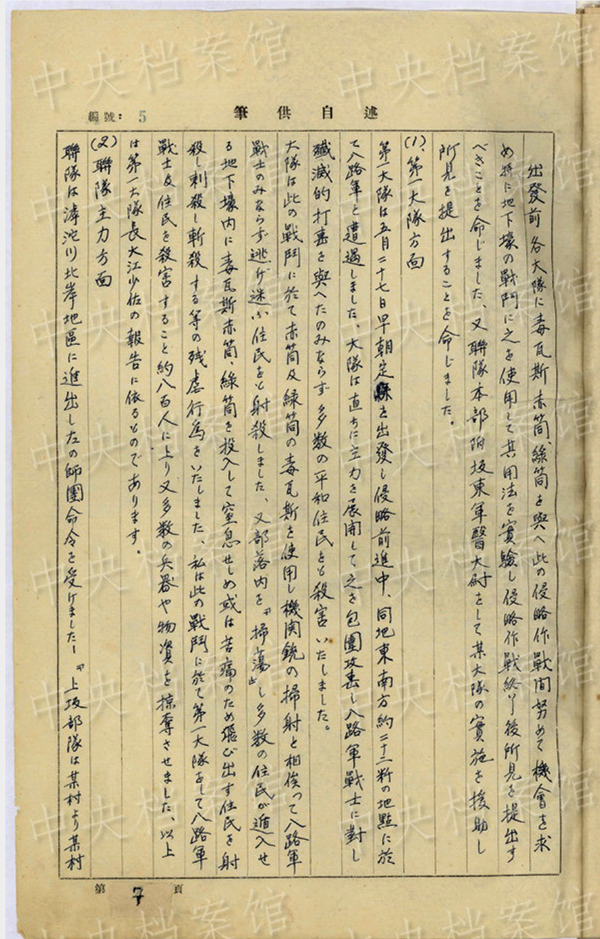 述自供筆
編號：5
出發前各大隊に毒瓦斯赤筒、綠筒を與へ此の侵略作戰間努めて機會を求
め特に地下壕の戰鬥に之を使用して其用法を實驗し侵略作戰終り後所見を提出す
べきことを命じました、又聯隊本部附坂東軍醫大尉をして某大隊の實施を援助し
所見を提出することを命じました。
(1)、第一大隊方面
第一大隊は五月二十七日早朝定縣を出發し侵略前進中、同地東南方約二十二粁の地點に於
て八路軍と遭遇しました。大隊は直ちに主力を展開して之を包圍攻擊し八路軍戰士に對し
殲滅的打擊を與へたのみならず多数の平和住民をも殺害いたしました。
大隊は此の戰鬥に於て赤筒及綠筒の毒瓦斯を使用し機関銃の掃射と相俟つて八路軍
戰士のみならず逃げ迷ふ住民をも射殺しました、又部落內を"掃蕩"し多数の住民が遁入せ
る地下壕內に毒瓦斯赤筒、綠筒を投入して窒息せしめ或は苦痛のため飛び出す住民を射
殺し刺殺し斬殺する等の残虐行為をいたしました、私は此の戰鬥に於て第一大隊をして八路軍
戰士及住民を殺害すること約八百人に上り又多数の兵器や物資を掠奪させました、以上
は第一大隊長大江少佐の報告に依るものであります。
(2)聯隊主力方面
聯隊は滹沱川北岸地區に進出したの師團命令を受けました－"上坂部隊は某村より某村
第7頁
中央档案馆